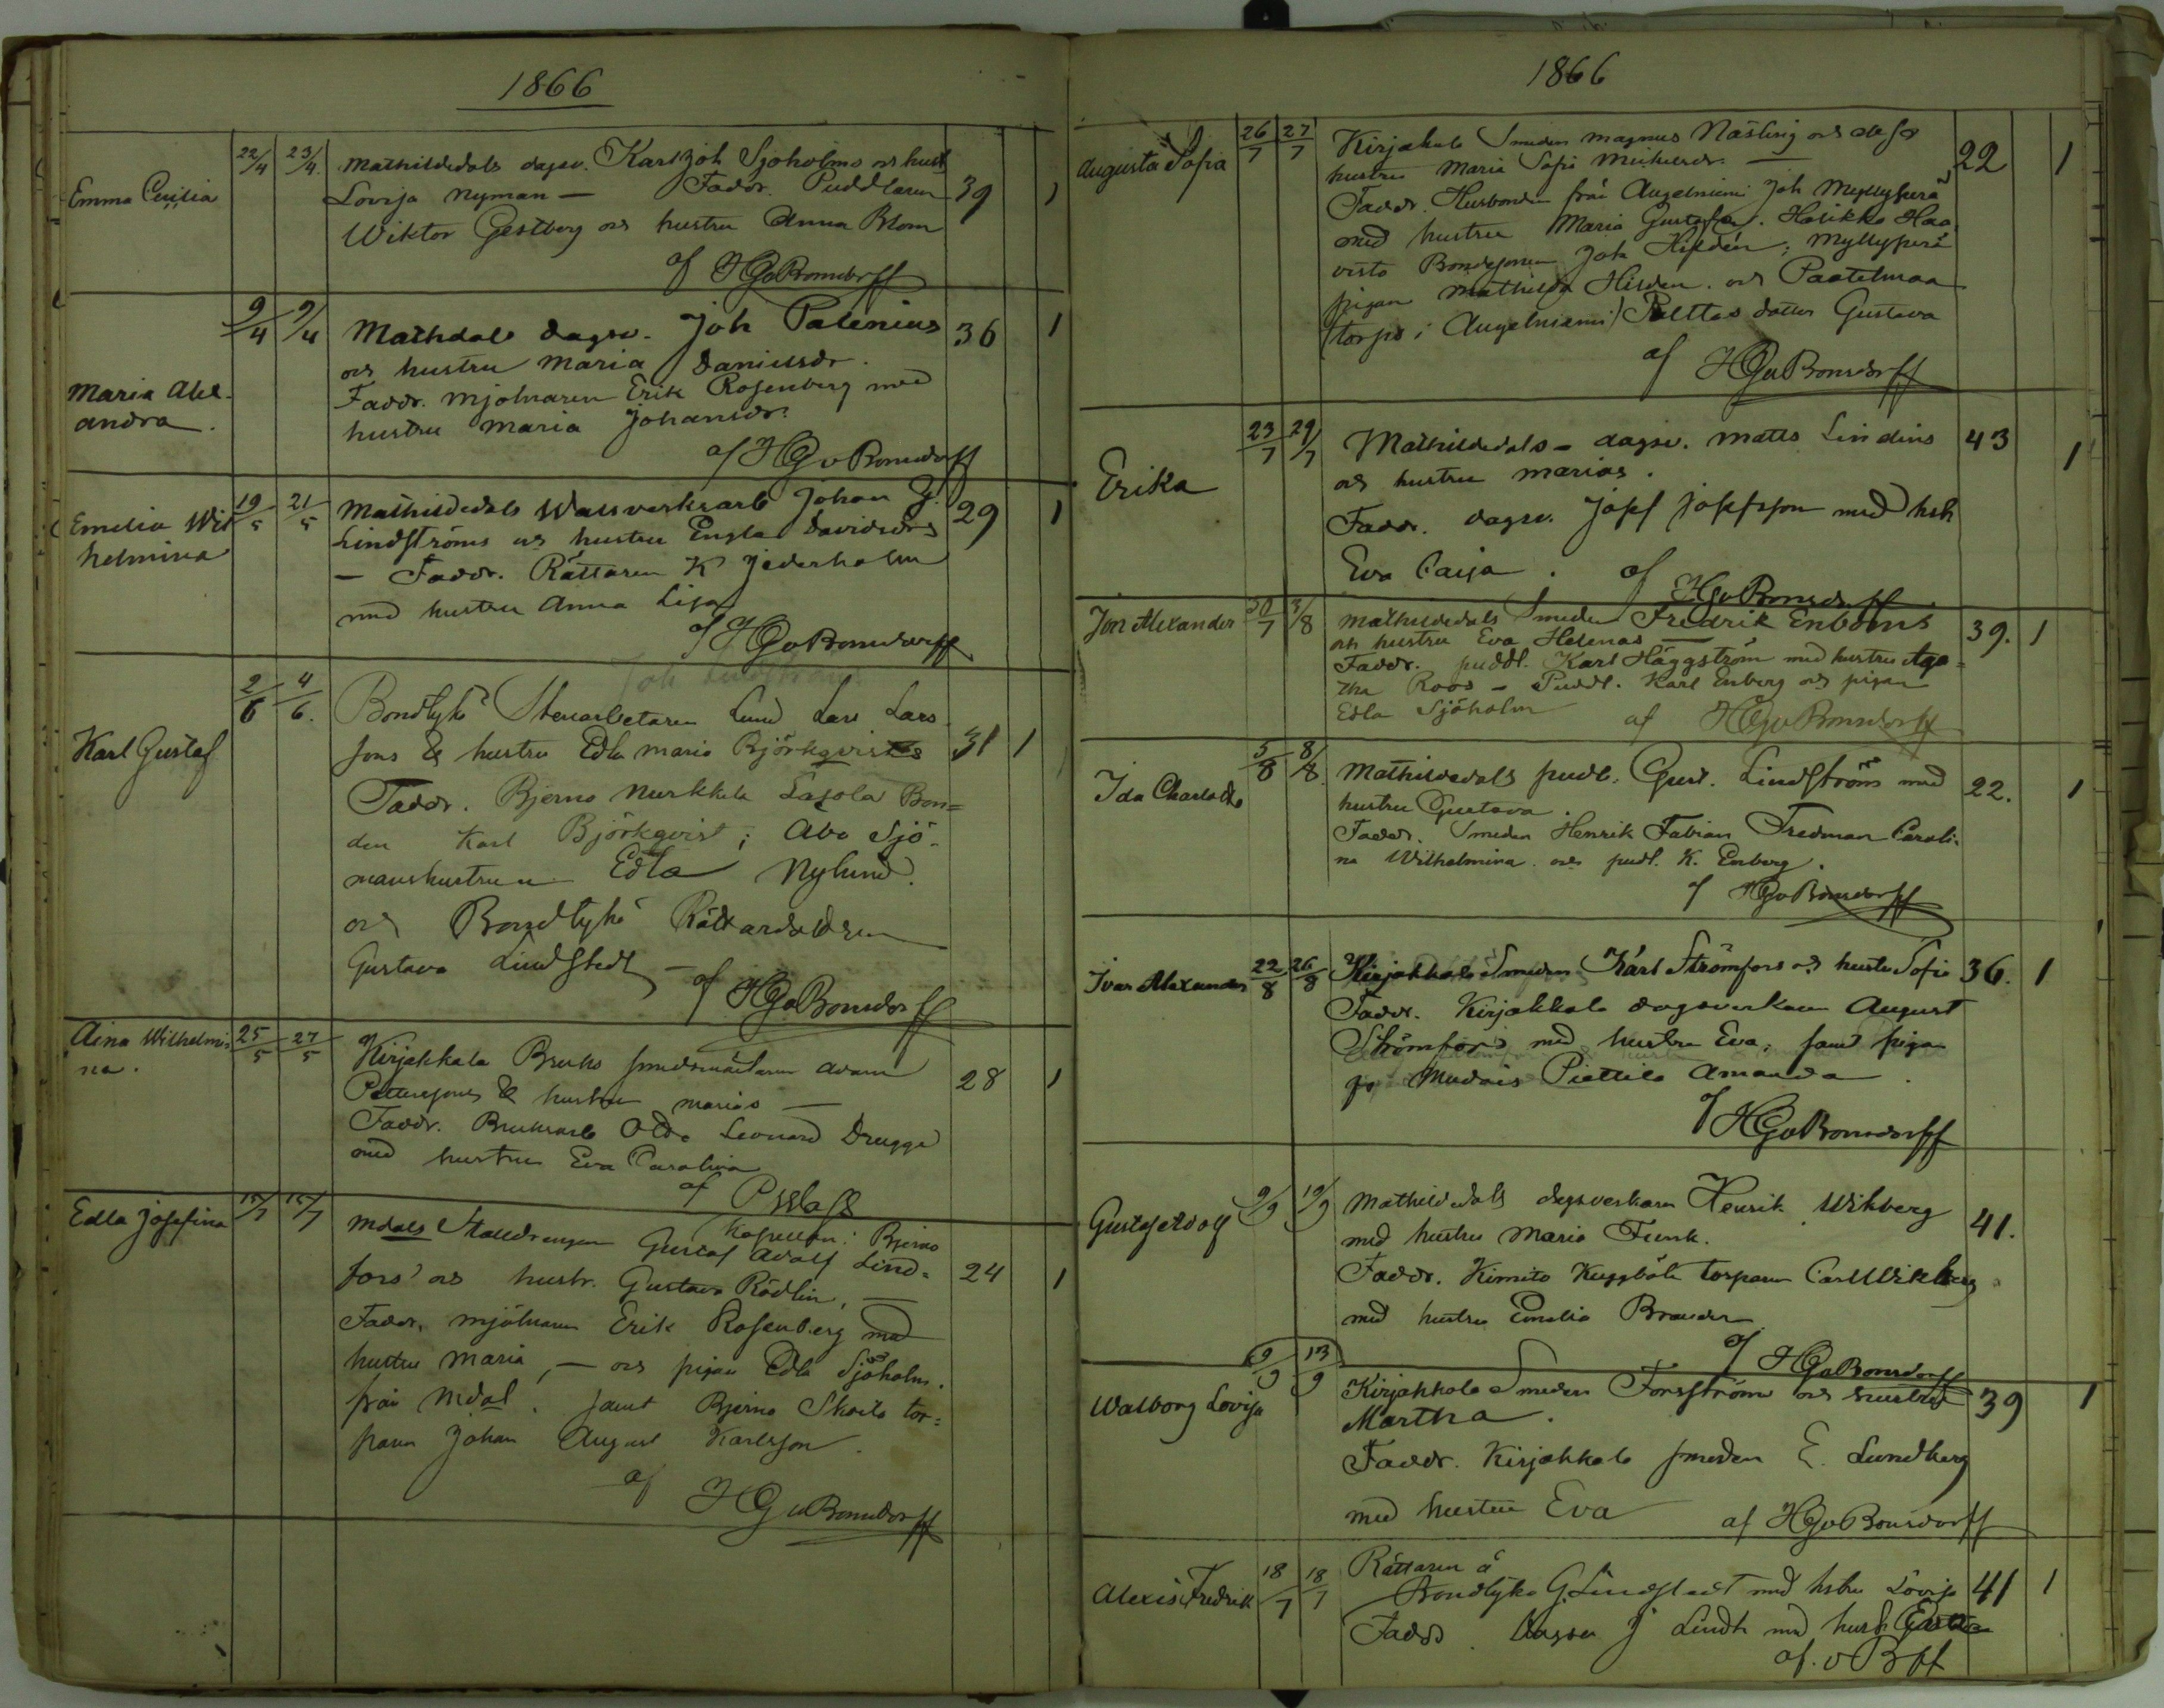 1866
Emma Cecilia 22/4 23/4 Mathildedals dagsv. Karl Joh Sjöholms och hust
Lovisa Nyman — Faddr. Puddlaren 39 1
Wiktor Gestberg och hustru Anna Blom
af HGvBonsdorff
9/4 9/4 Mathdals dagsv. Joh Palenius 36 1
och hustru Maria Danielsdr.
Maria Alex- Faddr. mjölnaren Erik Rosenberg med
andra. hustru Maria Johansdr.
af HGvBonsdorff
Emelia Wil 19/5 21/5 Mathildedals Wallsverksarb Johan G.
helmina Lindströms och hustru Engla Davidsdrs 29 1
— Faddr. Rättaren K Jederholm
med hustru Anna Lisa
af HGvBonsdorff
2/6 4/6. Bondtykö Stenarbetaren Lund Lars Lars
Karl Gustaf sons & hustru Edla Maria Björkqvists 31 1
Faddr. Bjerno Nurkkila Lasola Bon=
den Karl Björkqvist; Abo Sjö-
manshustrun Edla Nylund.
och Bondtykö
Gustava Lindstedt —
af HGvBonsdorff
Aina Wilhelmi 25/5 27/5 Kirjakkala Bruks smedsmästaren Adam
na. Pettersons & hustru Marias — 28 1
Faddr. Bruksarb Leonard Drugge
med hustru Eva Carolina
af
Edla Josefina 15/7 15/7 Mdals Stalldrengen Gustaf Adolf Lind= 24 1
fors' och hustr. Gustava Rödlin, —
Faddr. mjölnaren Erik Rosenberg med
hustru Maria, — och pigan Edla Sjöholm.
från Mdal. samt Bjerno Skoila tor=
paren Johan August Karlsson.
af HGvBonsdorff
1866
Augusta Sofia 26/7 27/7 Kirjakala Smeden Magnus Näsling och dess
hustru Maria Sofi 22 1
Faddr. Husbonden från Angelniemi Joh Myllyperä
med hustru Maria Gustafva. Halikko Haa
visto Bondesonen Joh Hilden; Myllyperä
pigan Mathilda Hilden. och Paatelmaa
torps i Angelniemi) Palttas dotter Gustava
af HGvBonsdorff
Erika 23/7 29/7 Mathildedals - dagsv. Matts Lindins 43 1
och hustru Marias.
Faddr. dagsv. Josef Josefsson med hsh
Eva Caisa. af HGvBonsdorff
Jon Alexander 30/7 3/8 Mathildedals Smeden Fredrik Enboms 39. 1
och hustru Eva Helenas —
Faddr. puddl. Karl Häggström med hustru Aga=
tha Roos — Puddl. Karl Enberg och pigan
Edla Sjöholm af HGvBonsdorff
Ida Charlotta 5/8 8/8. Mathildedals pudl. Gust. Lindström med 22. 1
hustru Gustava.
Faddr. Smeden Henrik Fabian Fredman Caroli-
na Wilhelmina. och pudl. K. Enberg.
af HGvBonsdorff
Ivar Alexander 22/8 26/8 Kirjakkala Smeden Karl Strömfors och hustru Sofia 36. 1
Faddr. Kirjakkala dagsverkaren August
Strömfors med hustru Eva, samt pigan
Piettilä Amanda.
af HGvBonsdorff
Gustaf Adolf 9/9 19/9 Mathildedals dagsverkaren Henrik Wikberg 41.
med hustru Maria Funk.
Faddr. Kimito Kuggböle torparen Carl Wikberg
med hustru Emelia
af HGvBonsdorff
Walborg Lovisa 9/9 13/9 Kirjakkala Smeden Forsström och hustrus 39 1
Martha.
Faddr. Kirjakkala smeden E. Lundberg
med hustru Eva af HGvBonsdorff
Alexis Fredrik 18/7 18/7 Rättaren å
Bondtyko G. Lindstedt med hstru Lovisa 41 1
Faddr. Dagsv J Lindh med hust
af. v Bff